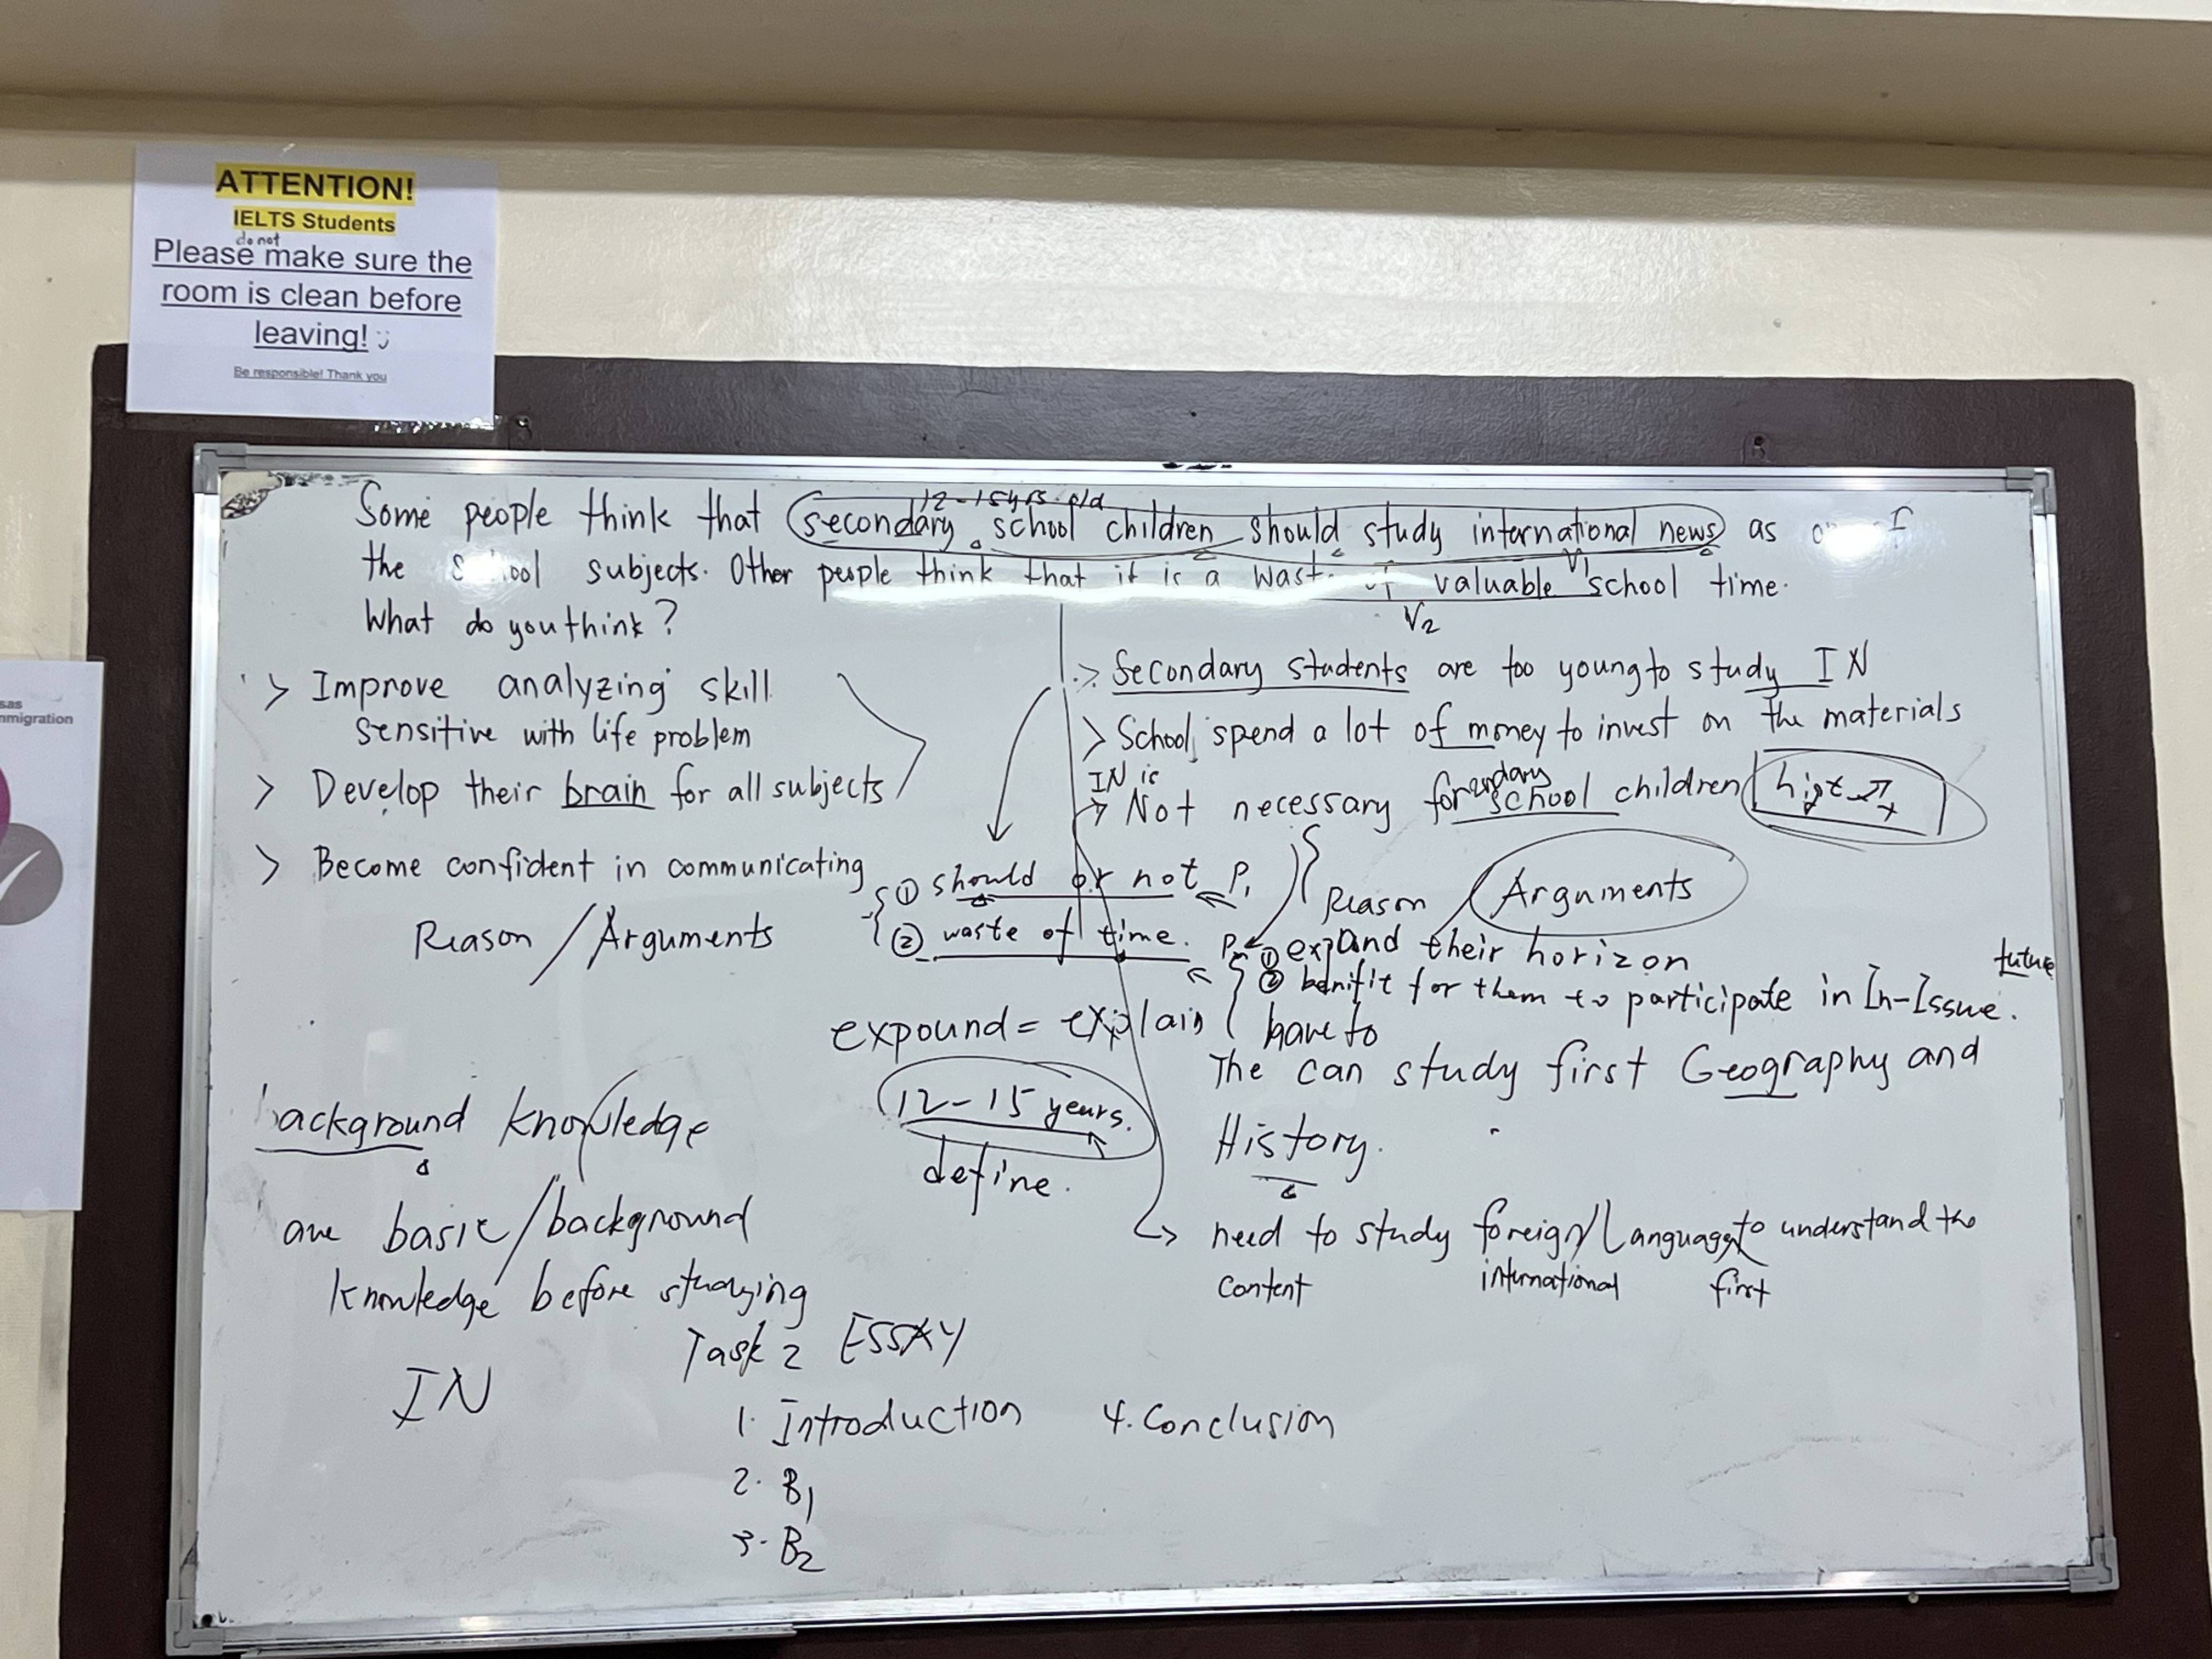 ATTENTION!
IELTS Students
do not
Please make sure the
room is clean before
leaving!
Be responsible! Thank you
sas
nmigration
12-15yrs. old
Some people think that secondary school children should study international news as
the school subjects. Other people think that it is a waste of valuable school time.
V1
V2
What do you think?
> Improve analyzing skill
sensitive with life problem
> Develop their brain for all subjects
> Become confident in communicating
Reason / Arguments
> Secondary students are too young to study IN
> School spend a lot of money to invest on the materials
IN is
> Not necessary for school children
Reason / Arguments
① should or not P1
② waste of time. P2
① expand their horizon
future
② benifit for them to participate in In-Issue.
expound = explain
have to
The can study first Geography and
History.
12-15 years.
define.
background knowledge
are basic/background
knowledge before studying
IN
need to study foreign/Language to understand the
content international first
Task 2 ESSAY
1. Introduction
2. B1
3. B2
4. Conclusion